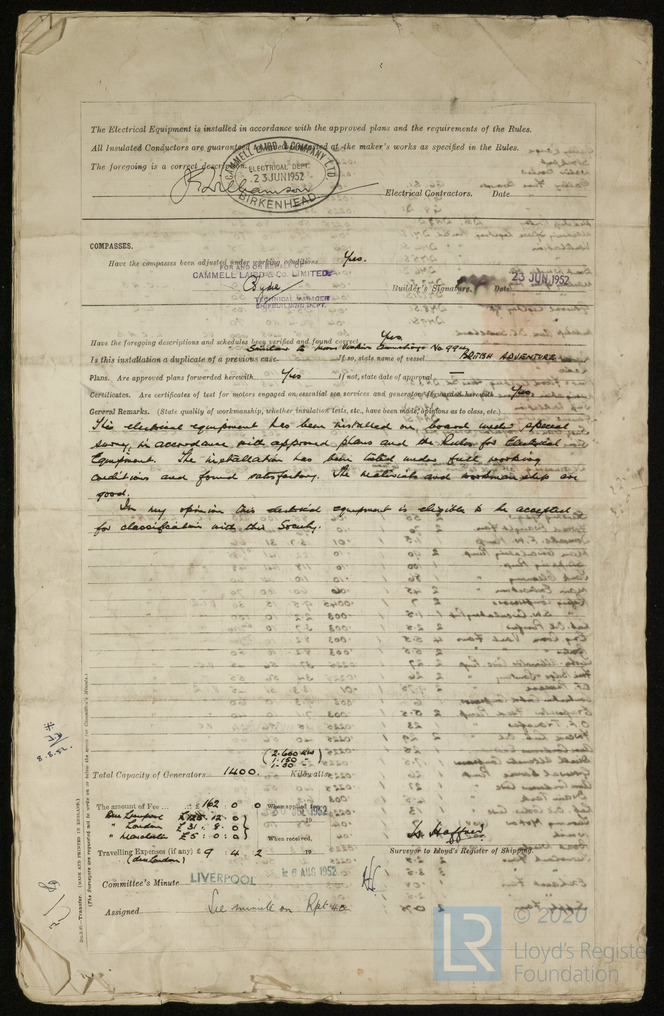 The Electrical Equipment is installed in accordance with the approved plans and the requirements of the Rules.
All Insulated Conductors are guaranteed to be tested at the maker's works as specified in the Rules.
The foregoing is a correct description.
CAMMELL LAIRD & COMPANY LTD
ELECTRICAL DEPT.
23 JUN 1952
BIRKENHEAD.
Electrical Contractors. Date
COMPASSES.
Have the compasses been adjusted under working conditions Yes.
FOR AND ON BEHALF OF
CAMMELL LAIRD & Co. LIMITED
TECHNICAL MANAGER
SHIPBUILDING DEPT.
Builder's Signature. Date 23 JUN 1952
Have the foregoing descriptions and schedules been verified and found correct Yes
Is this installation a duplicate of a previous case Similar to If so, state name of vessel BRITISH ADVENTURE
Plans. Are approved plans forwarded herewith Yes If not, state date of approval —
Certificates. Are certificates of test for motors engaged on essential sea services and generators forwarded herewith Yes.
General Remarks. (State quality of workmanship, whether insulation tests, etc., have been made, opinions as to class, etc.)
This electrical equipment has been installed on board under special
survey in accordance with approved plans and the Rules for Electrical
Equipment. The installation has been tested under full working
conditions and found satisfactory. The materials and workmanship are
good.
In my opinion this electrical equipment is eligible to be accepted
for classification with this Society.
8.8.52.
(2.600 KW)
1.150 "
1.50 "
Total Capacity of Generators 1400. Kilowatts.
The amount of Fee ... £ 162 : 0 : 0 When applied for,
Due Liverpool £125 : 12 : 0
" London £31 : 8 : 0
" Manchester £5 : 0 : 0 When received,
Travelling Expenses (if any) £ 9 : 4 : 2 19
(due London)
Surveyor to Lloyd's Register of Shipping.
Committee's Minute LIVERPOOL 6 AUG 1952
Assigned See minute on Rpt 4a
(MADE AND PRINTED IN ENGLAND.)
(The Surveyors are requested not to write on or below the space for Committee's Minute.)
LR
© 2020
Lloyd's Register
Foundation